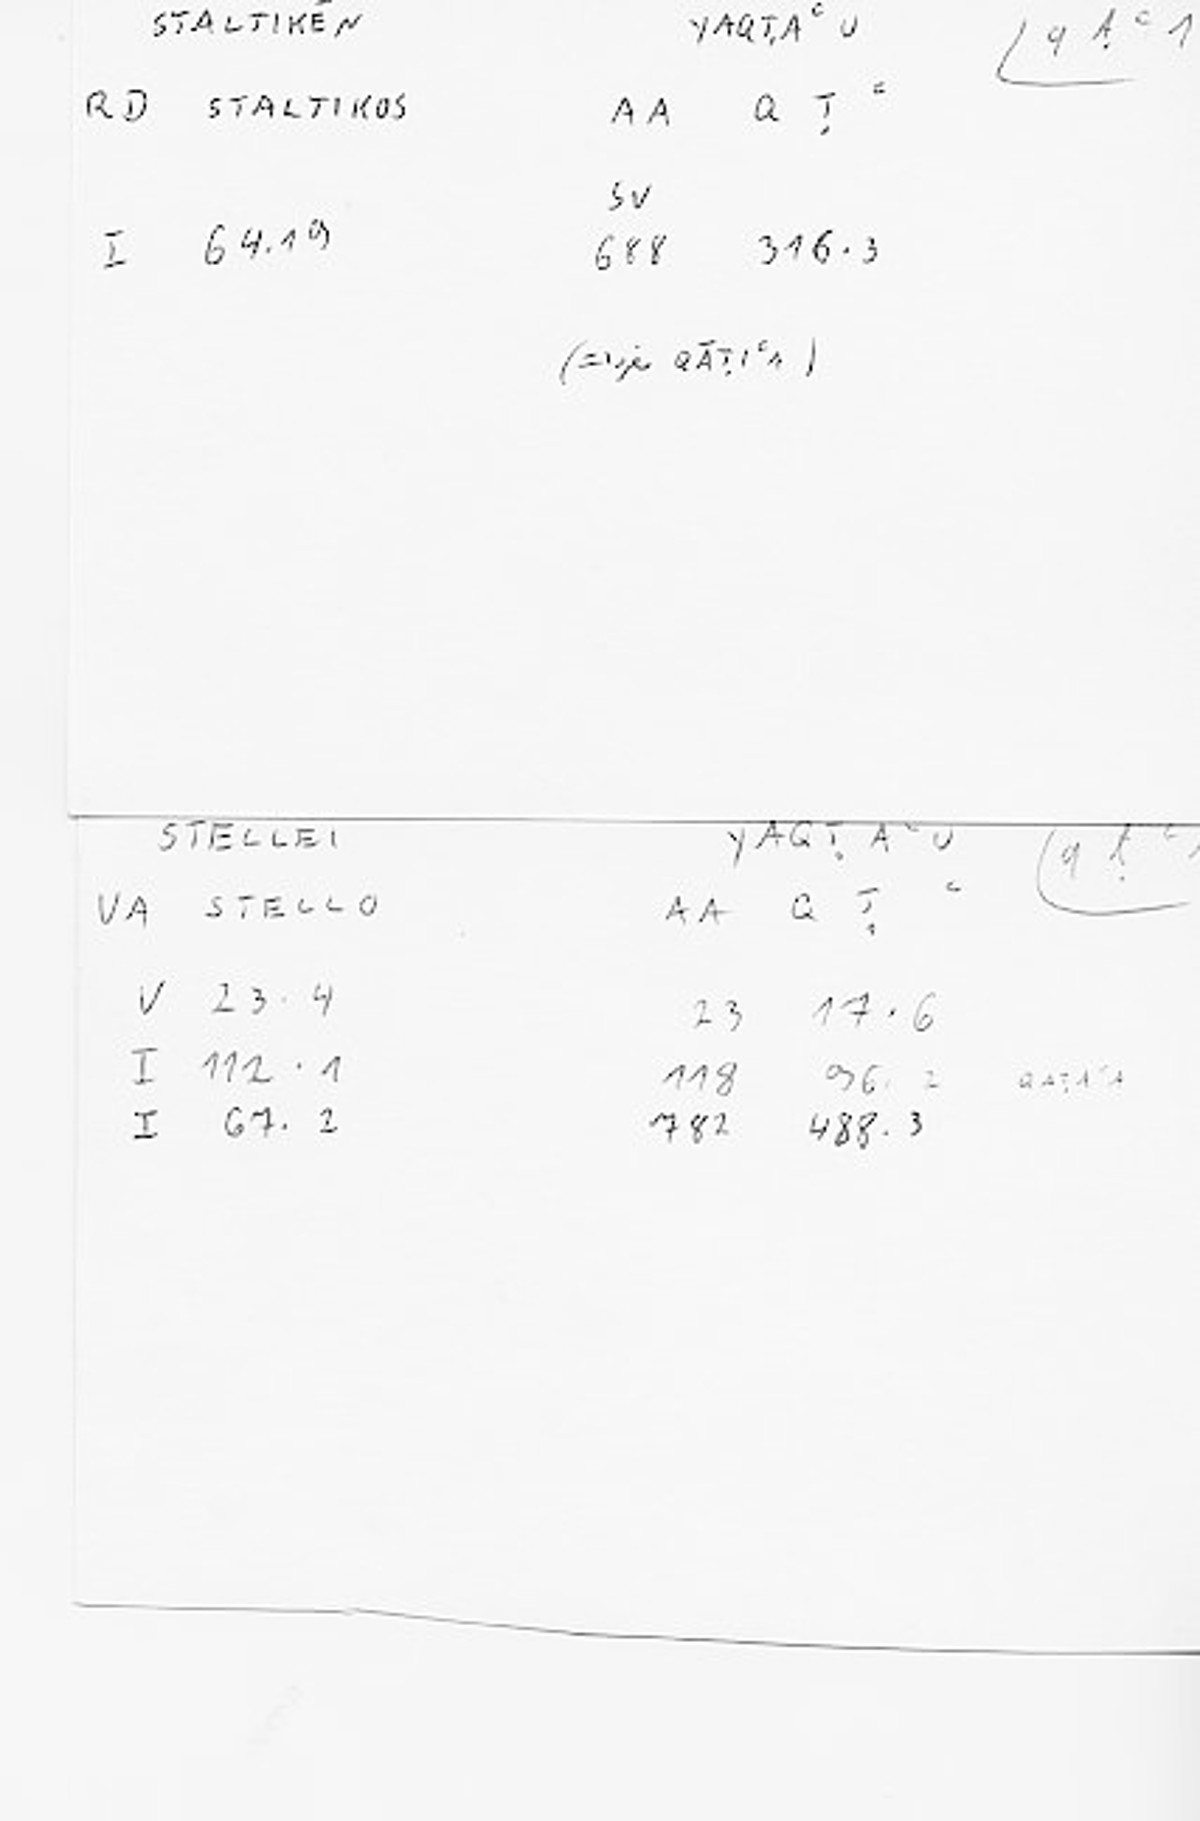 STALTIKĒN YAQṬAᶜU qṭᶜ1
RD STALTIKOS AA Q Ṭ ᶜ
SV
I 64.19 688 316.3
QĀṬIᶜ1)
STELLEI YAQṬAᶜU qṭᶜ
VA STELLO AA Q Ṭ ᶜ
V 23.4 23 17.6
I 112.1 118 96.2 QAṬAᶜA
I 67.2 782 488.3